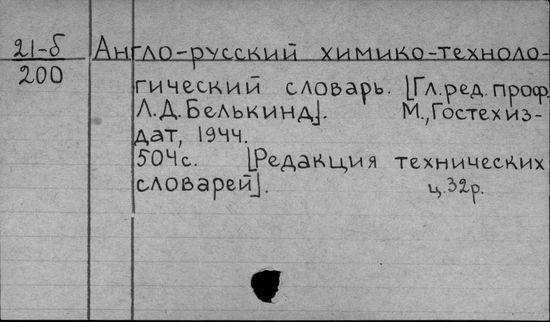 21-б
200
Англо-русский химико-техноло-
гический словарь. [Гл.ред.проф.
Л.Д.Белькинд].  М.,Гостехиз-
дат, 1944.
504с.  [Редакция технических
словарей].  ц.32р.